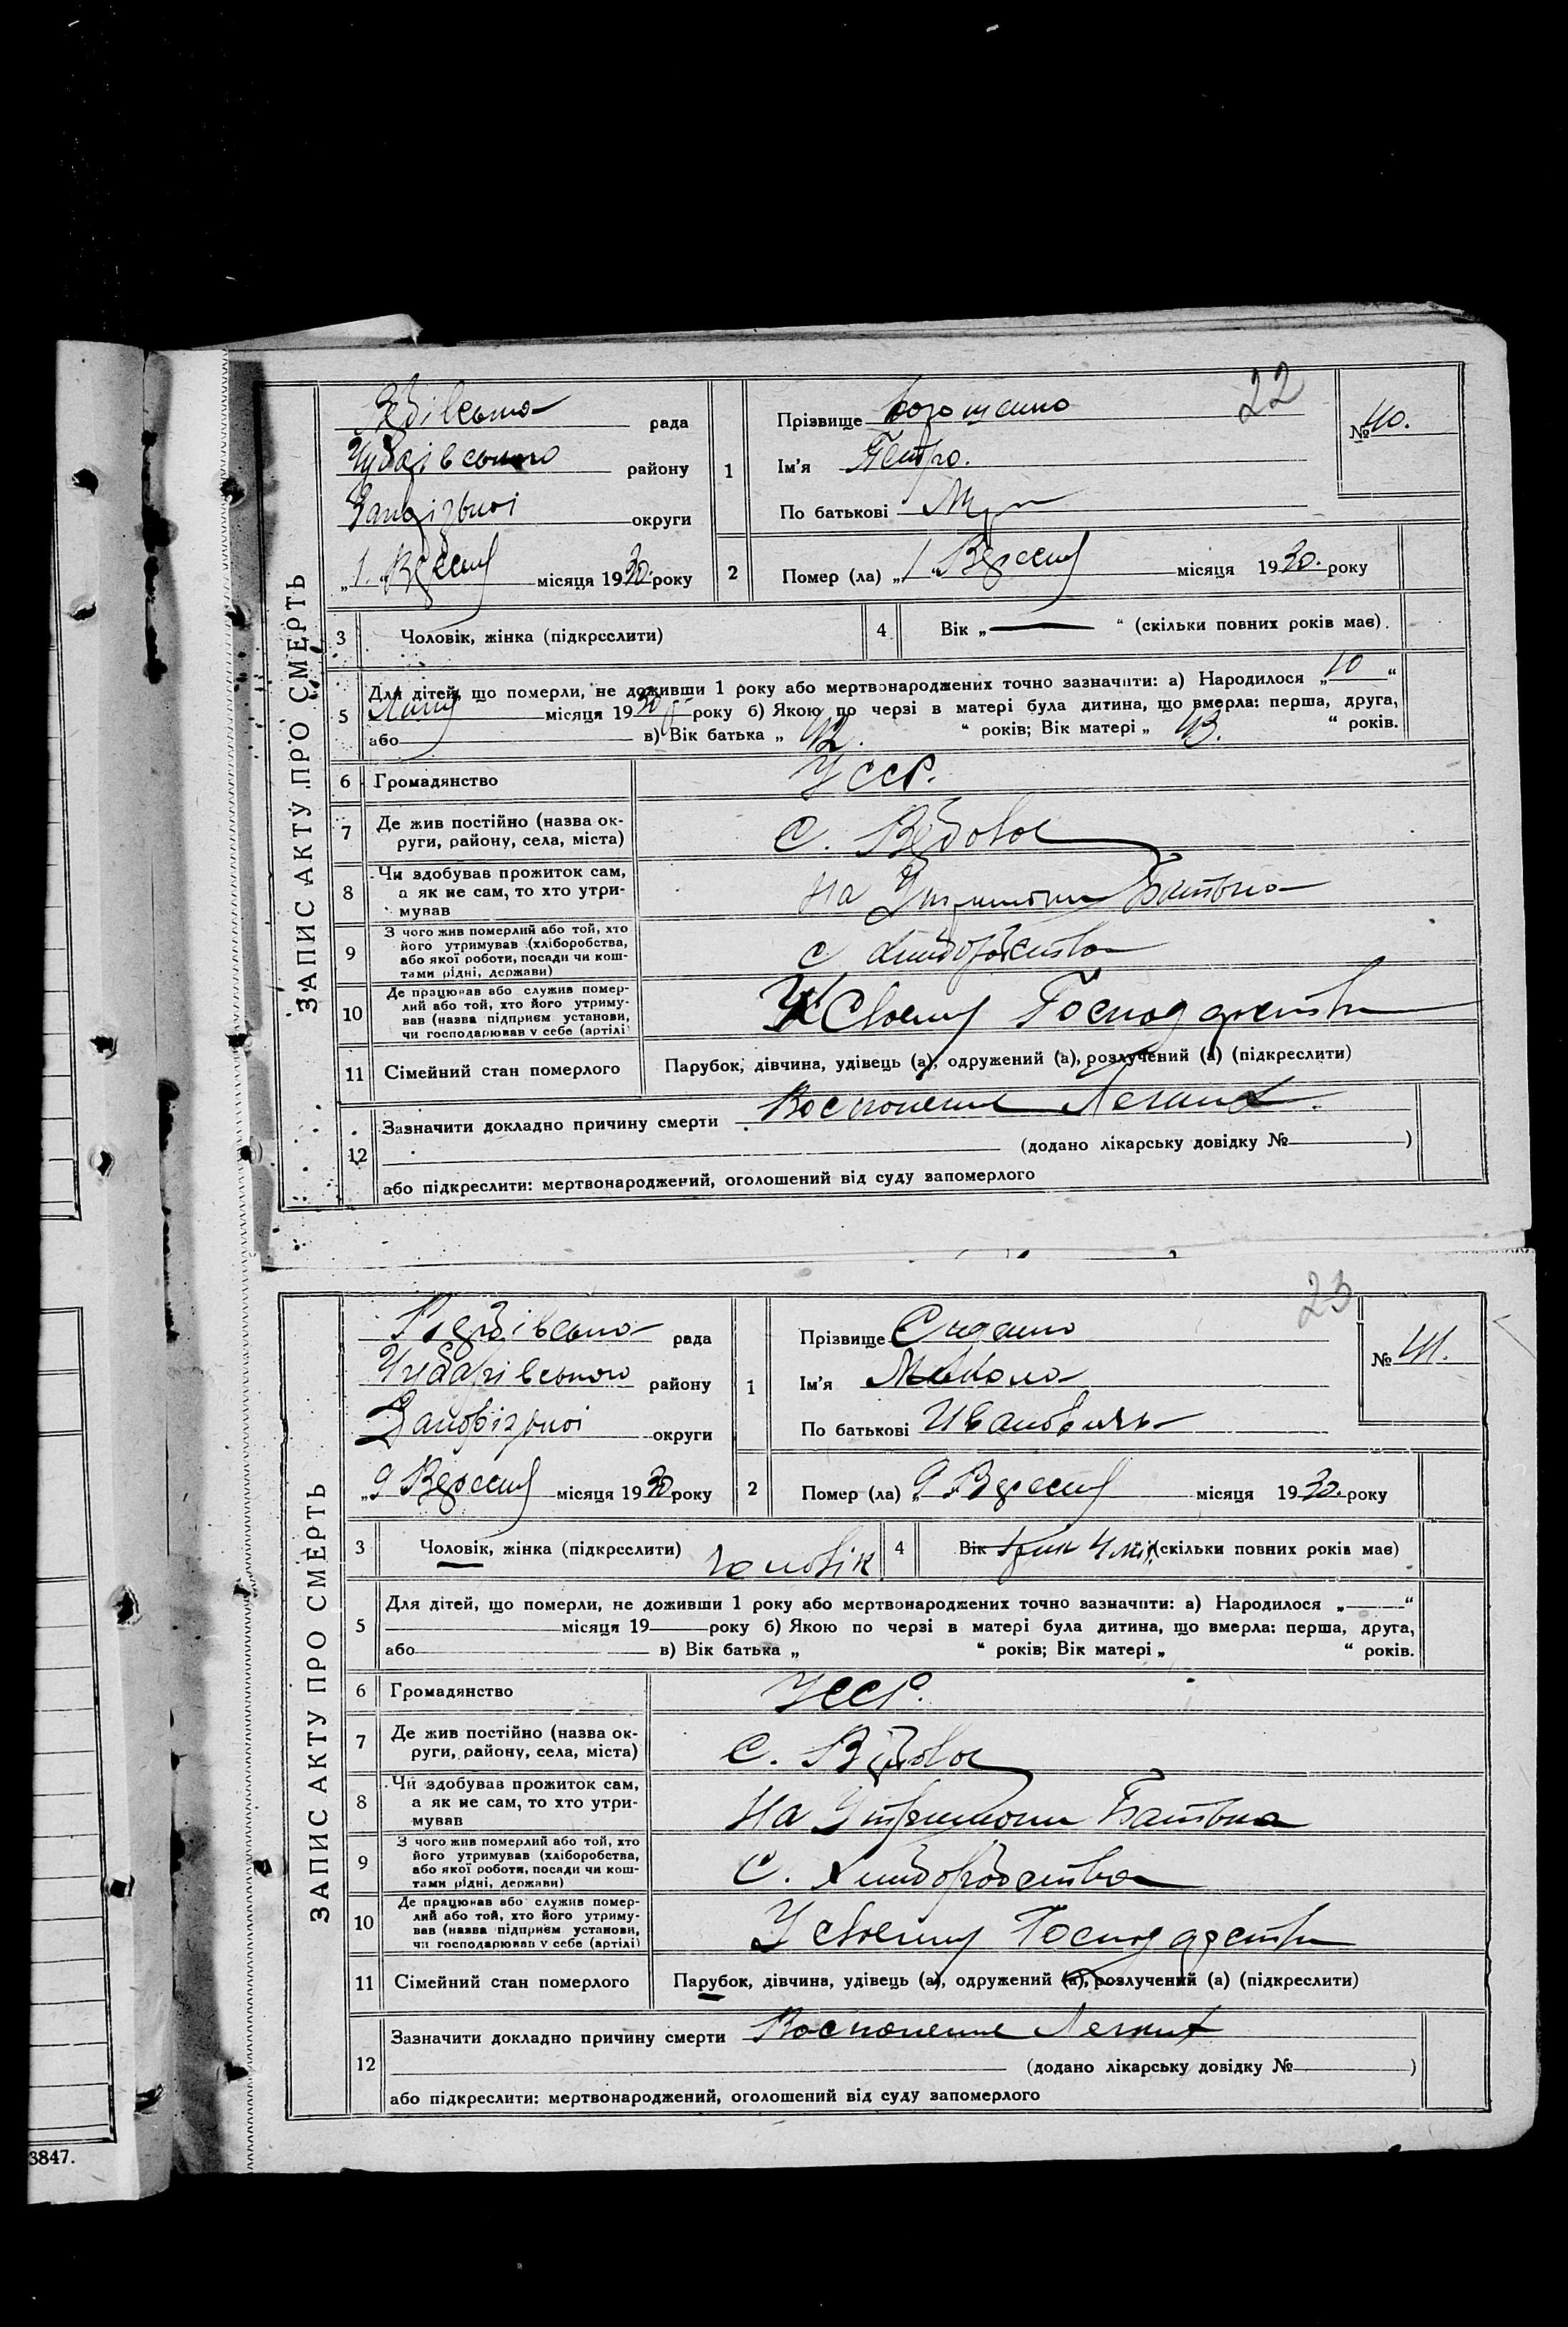 22
ЗАПИС АКТУ ПРО СМЕРТЬ
рада
району
округи
„1. місяця 1930. року
1
Прізвище
Ім'я Петро.
По батькові
№ 40.
2
Помер (ла) „1 місяця 1930. року
3
Чоловік, жінка (підкреслити)
4
Вік „ “ (скільки повних років має)
5
Для дітей, що померли, не доживши 1 року або мертвонароджених точно зазначити: а) Народилося „10“
місяця 1930 року б) Якою по черзі в матері була дитина, що вмерла: перша, друга,
або в) Вік батька „ 42. “ років; Вік матері „ 43. “ років.
6
Громадянство
УССР.
7
Де жив постійно (назва ок-
руги, району, села, міста)
С.
8
Чи здобував прожиток сам,
а як не сам, то хто утри-
мував
На
9
З чого жив померлий або той, хто
його утримував (хліборобства,
або якої роботи, посади чи кош-
тами рідні, держави)
с
10
Де працював або служив помер-
лий або той, хто його утриму-
вав (назва підприєм установи,
чи господарював у себе (артілі)
У своему
11
Сімейний стан померлого
Парубок, дівчина, удівець (а), одружений (а), розлучений (а) (підкреслити)
12
Зазначити докладно причину смерти
(додано лікарську довідку № )
або підкреслити: мертвонароджений, оголошений від суду запомерлого
23
ЗАПИС АКТУ ПРО СМЕРТЬ
рада
Чубарівського району
округи
„9 місяця 1930 року
1
Прізвище
Ім'я Микола
По батькові Ивановичь
№ 41.
2
Помер (ла) „9 місяця 1930. року
3
Чоловік, жінка (підкреслити) Чоловік
4
Вік 4 (скільки повних років має)
5
Для дітей, що померли, не доживши 1 року або мертвонароджених точно зазначити: а) Народилося „ “
місяця 19 року б) Якою по черзі в матері була дитина, що вмерла: перша, друга,
або в) Вік батька „ “ років; Вік матері „ “ років.
6
Громадянство
УССР.
7
Де жив постійно (назва ок-
руги, району, села, міста)
С.
8
Чи здобував прожиток сам,
а як не сам, то хто утри-
мував
На
9
З чого жив померлий або той, хто
його утримував (хліборобства,
або якої роботи, посади чи кош-
тами рідні, держави)
С.
10
Де працював або служив помер-
лий або той, хто його утриму-
вав (назва підприєм установи,
чи господарював у себе (артілі)
У своему
11
Сімейний стан померлого
Парубок, дівчина, удівець (а), одружений (а), розлучений (а) (підкреслити)
12
Зазначити докладно причину смерти
(додано лікарську довідку № )
або підкреслити: мертвонароджений, оголошений від суду запомерлого
3847.